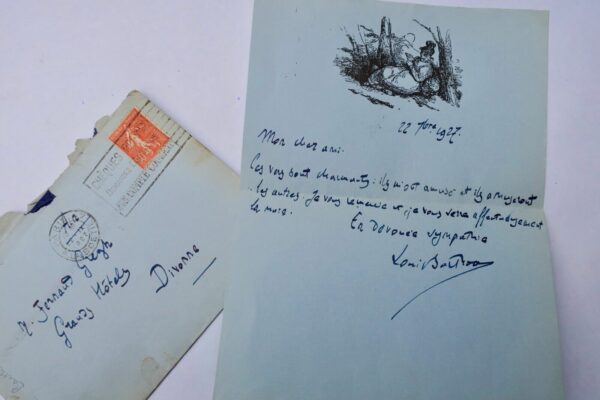 22 7bre 1927.
Mon cher ami.
Ces vers sont charmants : ils m'ont amusé et ils amuseront
les autres. Je vous remercie et je vous serre affectueusement
la main.
En dévouée sympathie
Louis Barthou
M. Fernand Gregh
Grands Hôtels
Divonne